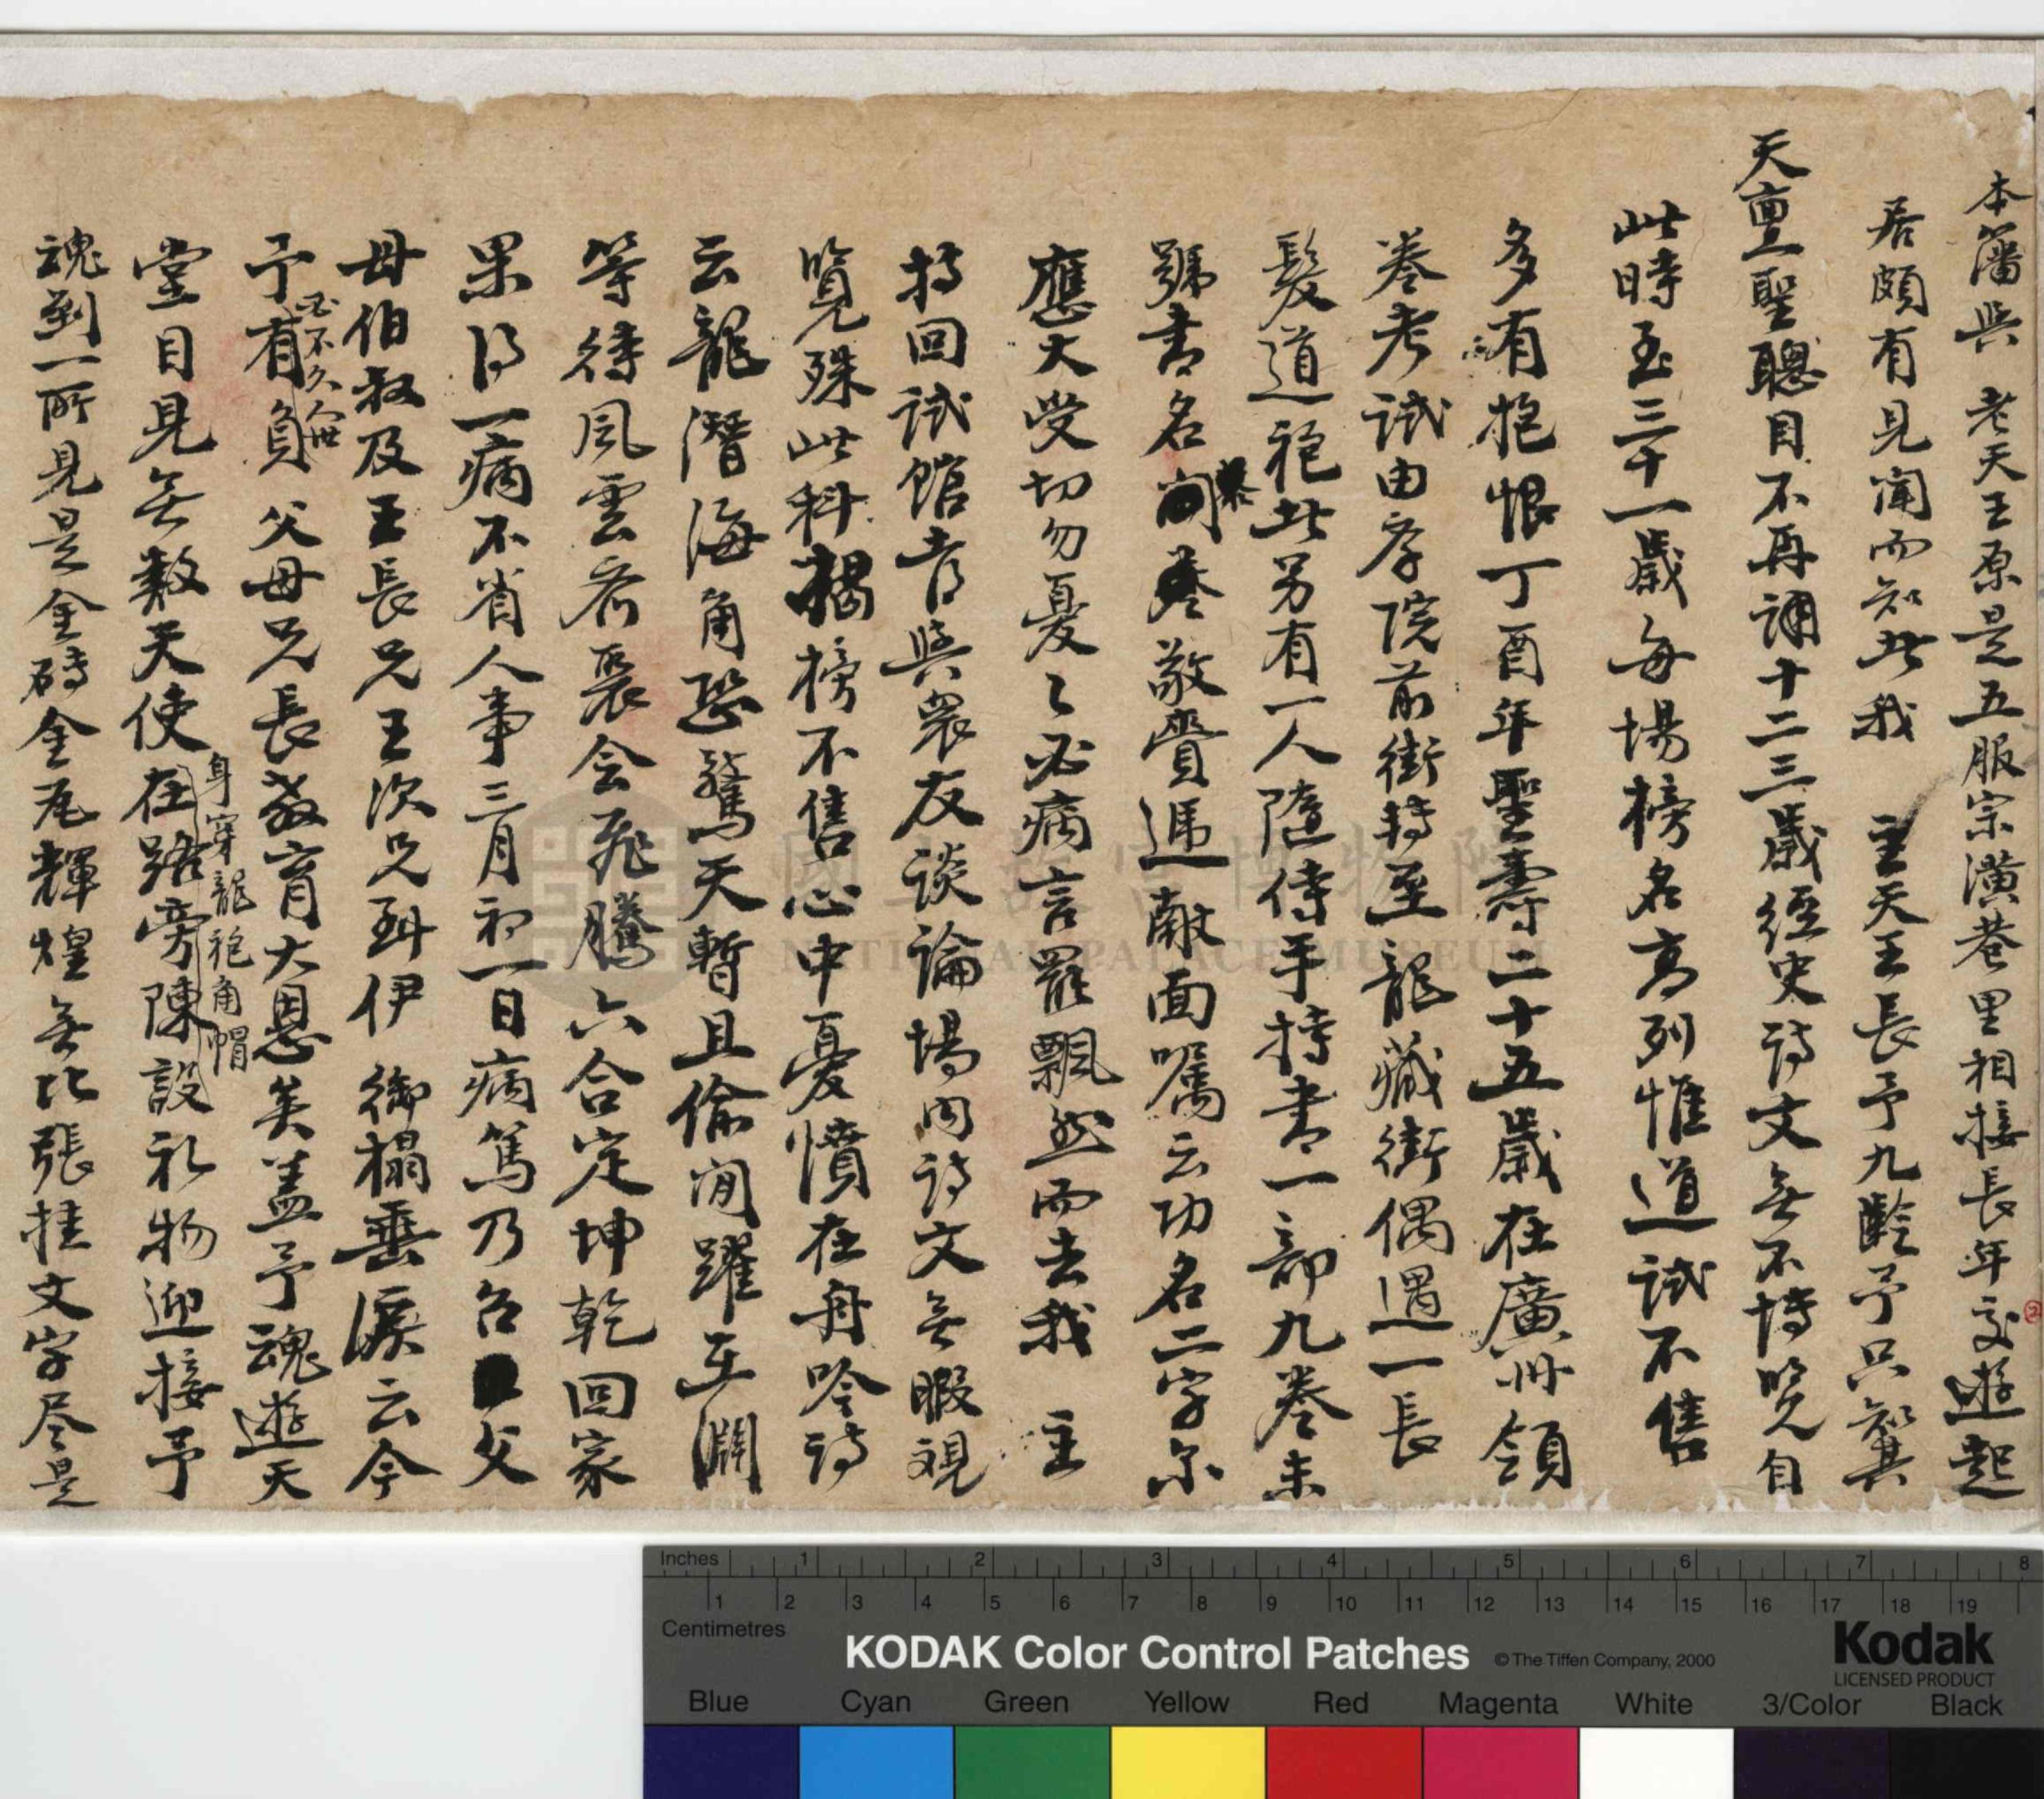 本藩與 老天王原是五服宗潢巷里相接長年交遊起
居頗有見闻而知此我 主天王長予九齡予只知其
天亶聖聰目不再誦十二三歲經史诗文無不博览自
此時至三十一歲每場榜名高列惟道試不售
多有抱恨丁酉年聖壽二十五歲在廣州領
卷考試由孝院前街轉至龍藏街偶遇一長
髮道袍此另有一人隨侍手持書一部九卷未
號書名
面嘱云功名二字尔
應大受切勿憂〻必病言罷飄然而去我 主
持回試館与衆友談論場內诗文無暇視
览殊此科揭榜不售心中憂憤在舟吟诗
云龍潛海角恐驚天暫且偷閒躍在淵
等待風雲齐聚会飛騰六合定坤乾回家
果得一病不省人事三月初一日病篤乃召父
母伯叔及王長兄王次兄到伊 御榻垂淚云今
予有負父母兄長教育大恩矣盖予魂遊天
必不久人世
堂目見無数天使在路旁陳設礼物迎接予
身穿龍袍角帽
魂到一所見是金磚金瓦輝煌無比張挂文字尽是
國立故宮博物院
NATIONAL PALACE MUSEUM
2
Inches 1 2 3 4 5 6 7 8
1 2 3 4 5 6 7 8 9 10 11 12 13 14 15 16 17 18 19
Centimetres
KODAK Color Control Patches © The Tiffen Company, 2000
Kodak
LICENSED PRODUCT
Blue Cyan Green Yellow Red Magenta White 3/Color Black